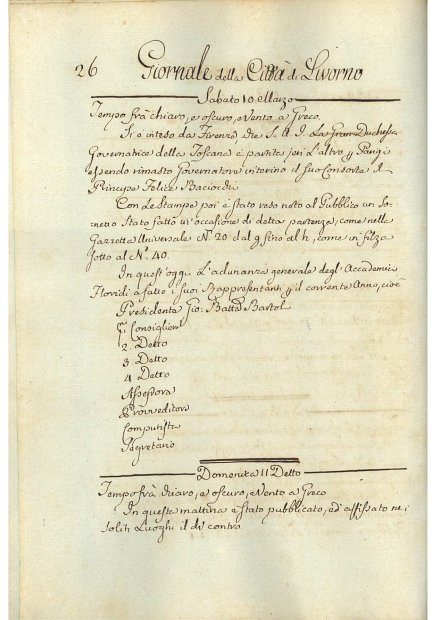 26 Giornale della Città di Livorno
Sabato 10 Marzo
Tempo frà chiaro, e oscuro, e Vento a Greco
Si è inteso da Firenze, che S. A. I. La Gran Duchessa
Governatrice della Toscana è partita jeri l'altro p Parigi
essendo rimasto Governatore interino il Suo Consorte il
Principe Felice Baciocchi
Con le Stampe poi è stato reso noto al Pubblico un So-
netto Stato fatto in occasione di detta partenza, come nella
Gazzetta Universale N.° 20 dal g fino al h, come in filza
sotto al N.° 40.
In quest'oggi L'adunanza generale degl'Accademici
Floridi à fatto i suoi Rappresentanti p il corrente Anno, cioè
Presidente Gio: Batta Bartol
Consigliere
2 Detto
3 Detto
4 Detto
Assessore
Provveditore
Computista
Segretario
Domenica 11 Detto
Tempo frà chiaro, e oscuro, e Vento a Greco
In questa mattina è stato pubblicato, ed affissato ne i
soliti Luoghi il di contro